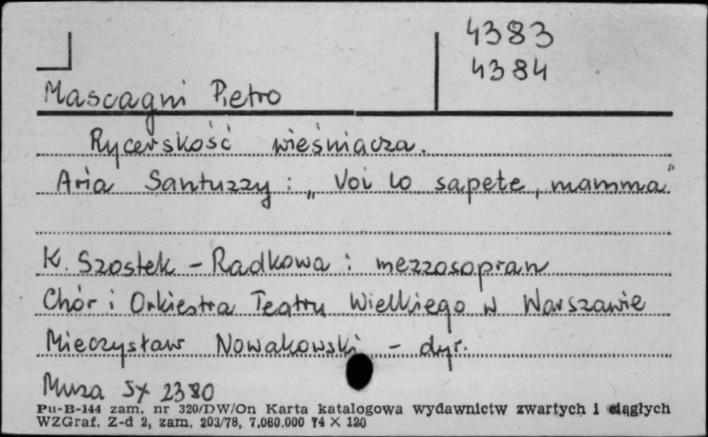 4383
4384
Mascagni Pietro
Rycerskość wieśniacza.
Aria Santuzzy : „ Voi lo sapete, mamma"
K. Szostek - Radkowa : mezzosopran
Chór i Orkiestra Teatru Wielkiego w Warszawie
Mieczysław Nowakowski - dyr.
Muza SX 2380
Pu-B-144 zam. nr 320/DW/On Karta katalogowa wydawnictw zwartych i ciągłych
WZGraf. Z-d 2, zam. 203/78, 7.080.000 74 X 120